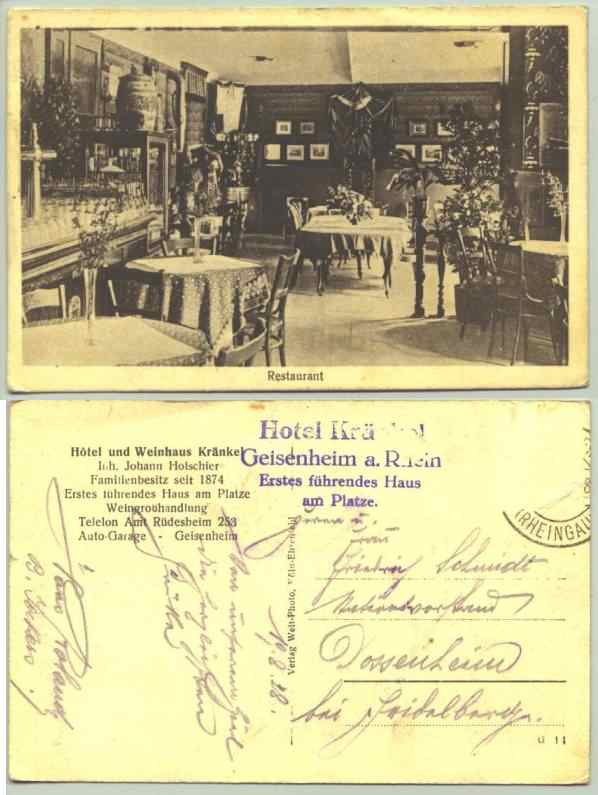 Restaurant
Hôtel und Weinhaus Kränkel
Inh. Johann Holschier
Familienbesitz seit 1874
Erstes führendes Haus am Platze
Weingroßhandlung
Telefon Amt Rüdesheim 253
Auto-Garage - Geisenheim
Hotel Kränkel
Geisenheim a. Rhein
Erstes führendes Haus
am Platze.
(RHEINGAU)
Verlag Welt-Photo, Köln-Ehrenfeld
19.8.28.
Von unserem
die herzlichsten
Grüße
Herrn u.
Frau
Friedrich Schmidt
Dossenheim
bei Heidelberg.
G 11